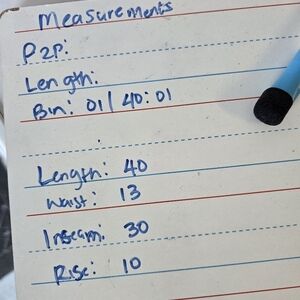 Measurements
P2P:
Length:
Bin: 01/40:01
Length: 40
Waist: 13
Inseam: 30
Rise: 10